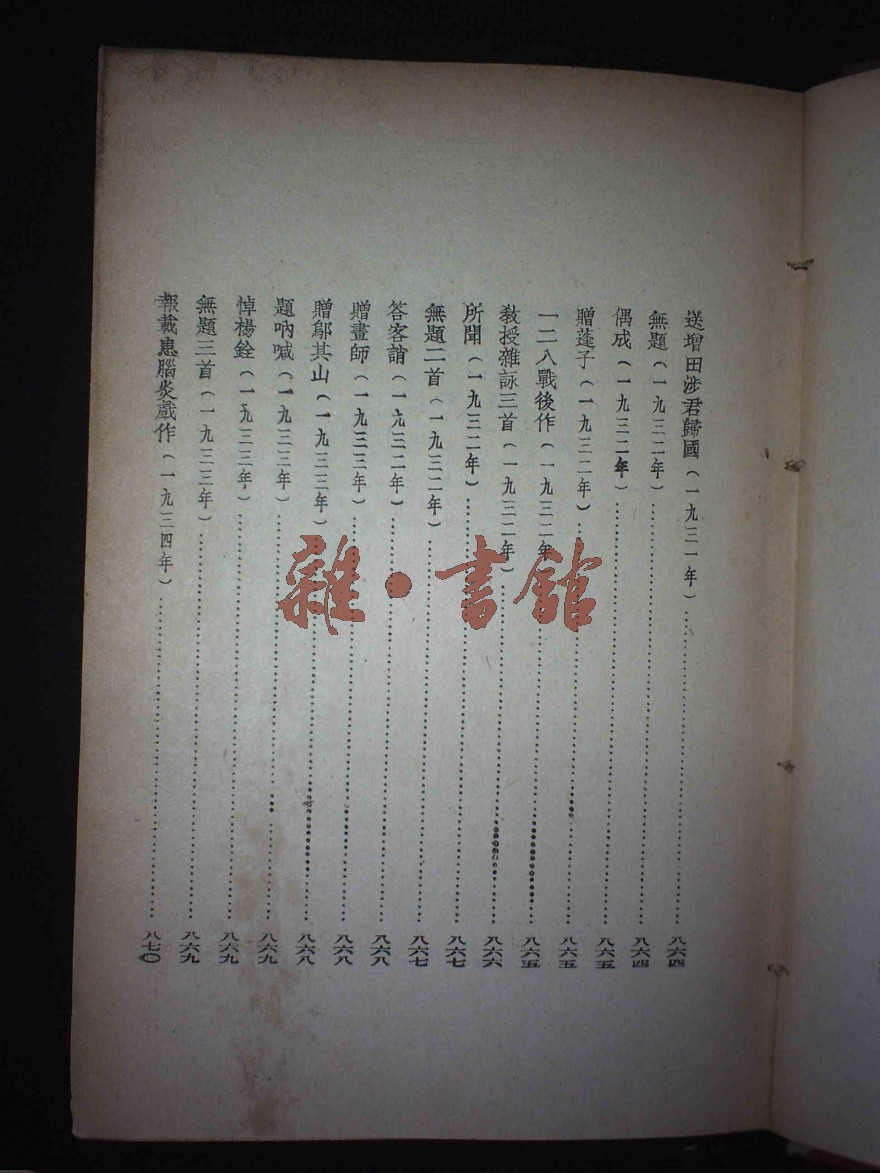 送增田涉君歸國(一九三一年)……八六四
無題(一九三二年)……八六四
偶成(一九三二年)……八六五
贈蓬子(一九三二年)……八六五
一二八戰後作(一九三二年)……八六五
教授雜詠三首(一九三二年)……八六六
所聞(一九三二年)……八六七
無題二首(一九三二年)……八六七
答客誚(一九三二年)……八六八
贈畫師(一九三三年)……八六八
贈鄔其山(一九三三年)……八六八
題吶喊(一九三三年)……八六九
悼楊銓(一九三三年)……八六九
無題三首(一九三三年)……八六九
報載患腦炎戲作(一九三四年)……八七〇
雜·書館